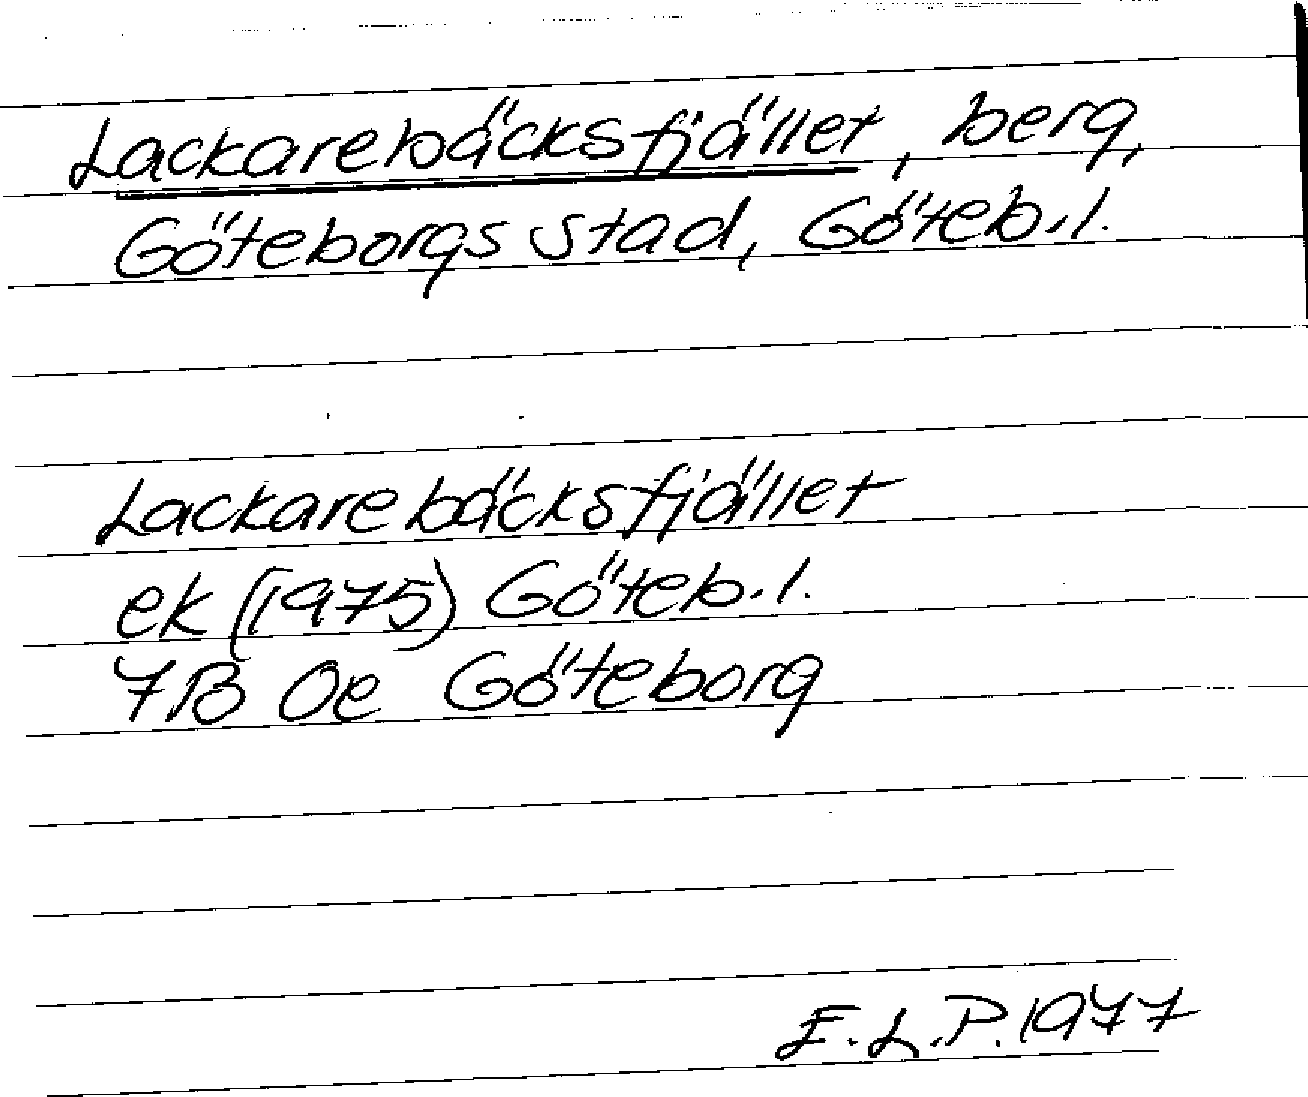 Lackarebäcksfjället, berg,
Göteborgs stad, Göteb.l.
Lackarebäcksfjället
ek (1975) Göteb.l.
7B Oe Göteborg
E.L.P. 1977